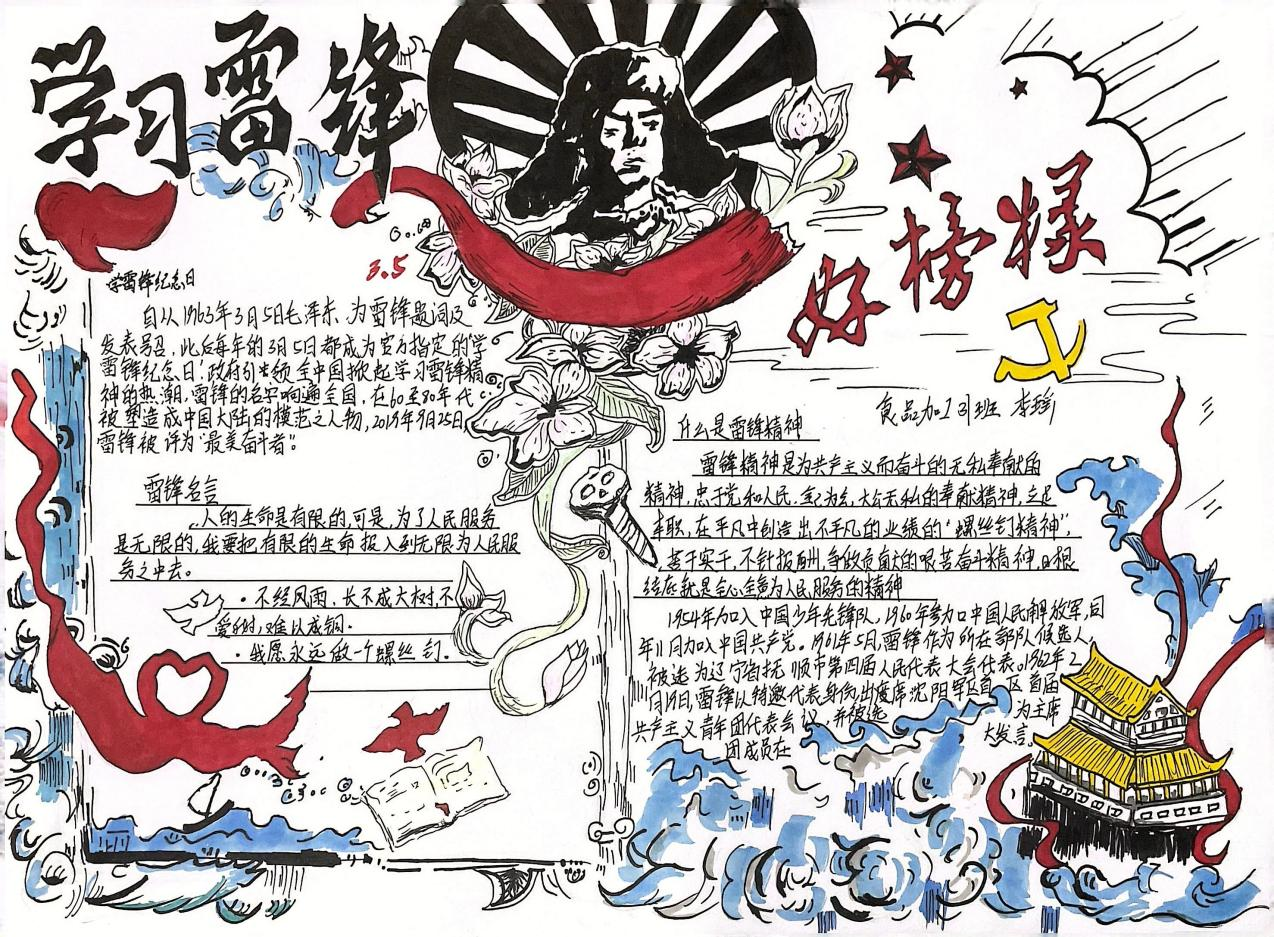 学习雷锋
好榜样
3.5
学雷锋纪念日
自从1963年3月5日毛泽东、为雷锋题词及
发表号召,此后每年的3月5日都成为官方指定的学
雷锋纪念日:政府引出领全中国掀起学习雷锋精
神的热潮,雷锋的名字响遍全国,在60至80年代
被塑造成中国大陆的模范之人物,2019年9月25日,
雷锋被评为"最美奋斗者"。
雷锋名言
人的生命是有限的,可是,为了人民服务
是无限的,我要把有限的生命投入到无限为人民服
务之中去。
·不经风雨,长不成大树,不
受 ,难以成钢.
·我愿永远做一个螺丝钉.
食品加工31班 李
什么是雷锋精神
雷锋精神是为共产主义而奋斗的无私奉献的
精神,忠于党和人民、 、大公无私的奉献精神,立足
本职,在平凡中创造出不平凡的业绩的"螺丝钉精神",
苦干实干,不计报酬,争做贡献的艰苦奋斗精神,归根
结底就是全心全意为人民服务的精神
1954年加入中国少年先锋队,1960年参加中国人民解放军,同
年11月加入中国共产党。1961年5月,雷锋作为所在部队候选人,
被选为辽宁省抚顺市第四届人民代表大会代表。1962年2
月19日,雷锋以特邀代表身份,出席沈阳军区首届
共产主义青年团代表会议,并被选为主席
团成员在大发言。